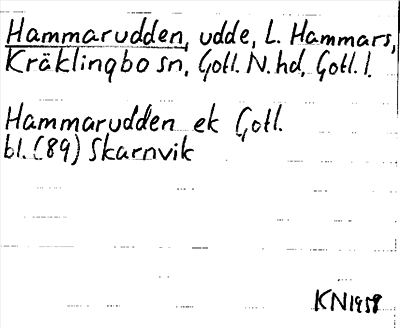 Hammarudden, udde, L. Hammars,
Kräklingbo sn, Gotl. N. hd, Gotl. l.
Hammarudden ek Gotl.
bl. (89) Skarnvik
KN1958